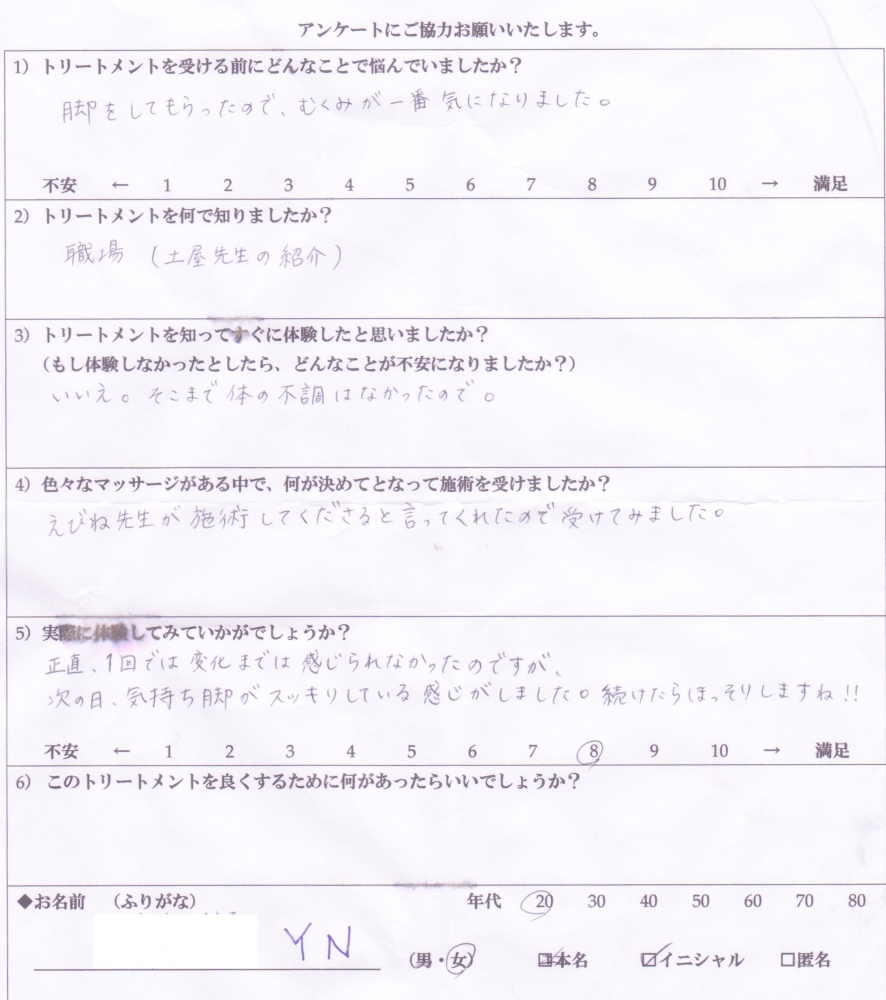 アンケートにご協力お願いいたします。
1）トリートメントを受ける前にどんなことで悩んでいましたか？
脚をしてもらったので、むくみが一番気になりました。
不安 ← 1 2 3 4 5 6 7 8 9 10 → 満足
2）トリートメントを何で知りましたか？
職場（土屋先生の紹介）
3）トリートメントを知ってすぐに体験したと思いましたか？
（もし体験しなかったとしたら、どんなことが不安になりましたか？）
いいえ。そこまで体の不調はなかったので。
4）色々なマッサージがある中で、何が決めてとなって施術を受けましたか？
えびね先生が施術してくださると言ってくれたので受けてみました。
5）実際に体験してみていかがでしょうか？
正直、1回では変化までは感じられなかったのですが、
次の日、気持ち脚がスッキリしている感じがしました。続けたらほっそりしますね!!
不安 ← 1 2 3 4 5 6 7 8 9 10 → 満足
6）このトリートメントを良くするために何があったらいいでしょうか？
◆お名前 （ふりがな） 年代 20 30 40 50 60 70 80
YN （男・女） 本名 ☑イニシャル □匿名